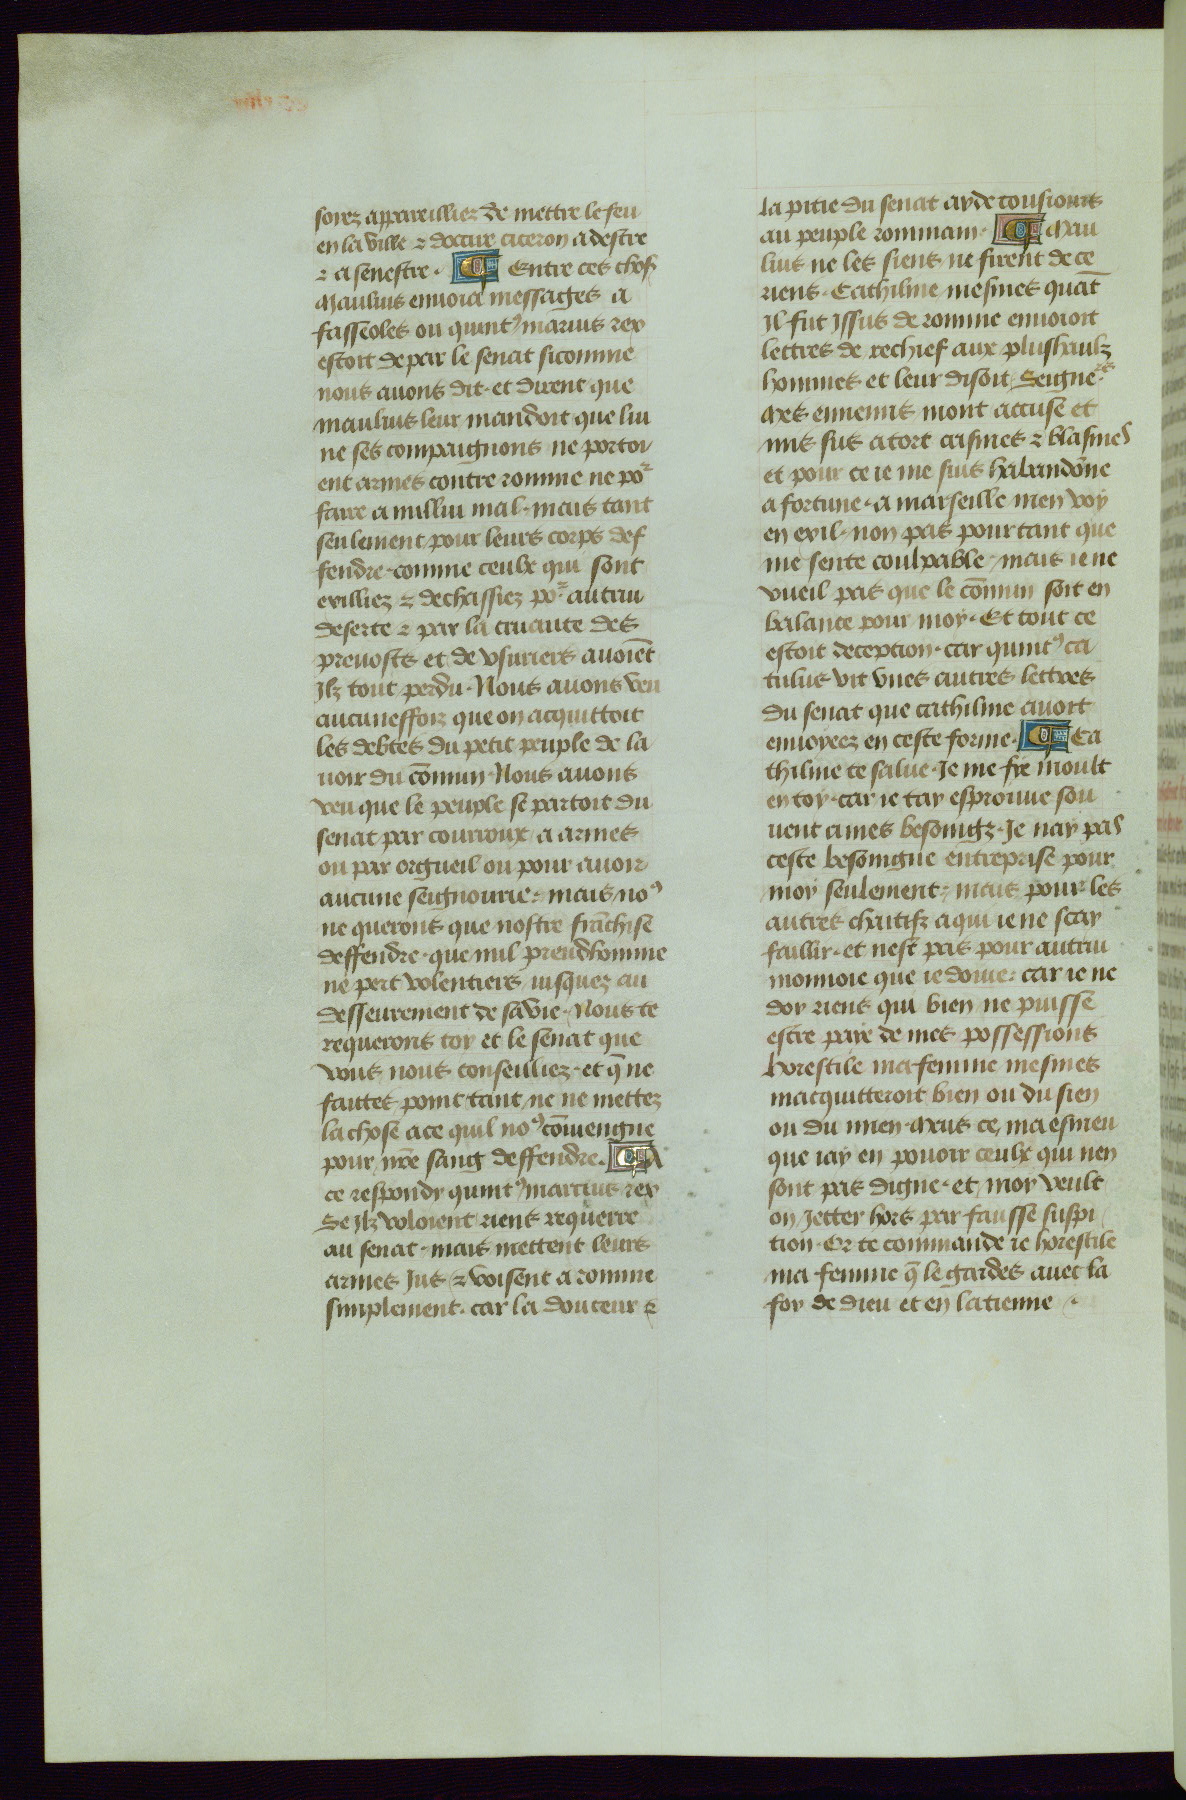 soiez appareilliez de mettre le feu
en la ville ⁊ doccire ciceron a destre
⁊ a senestre · Entre ces chos̄
Maulius enuoia messages a
fasseoles ou quintꝰ marius rex
estoit de par le senat sicomme
nous auons dit · et dirent que
maulius leur mandoit que lui
ne ses compaignons ne portoi
ent armes contre romme ne poᷣ
faire a nullui mal · mais tant
seulement pour leurs corps def
fendre · comme ceulx qui sont
exilliez ⁊ dechassiez poᷣ autrui
deserte ⁊ par la cruaute des
preuosts et de vsuriers auoiēt
Ilz tout perdu · Nous auons veu
aucuneffoiz que on acquittoit
les debtes du petit peuple de la
uoir du cōmun · Nous auons
veu que le peuple se partoit du
senat par courroux a armes
ou par orgueil ou pour auoir
aucune seignourie · mais noꝰ
ne querons que nostre frāchise
deffendre · que nul preudhomme
ne pert volentiers iusquez au
desseurement de sa vie · Nous te
requerons toy et le senat que
vous nous conseilliez · et q̄ ne
faittes point tant ne ne mettez
la chose a ce quil noꝰ cōuiengne
pour nr̄e sang deffendre · A
ce respondy quintꝰ marcius rex
Se Ilz voloient riens requerre
au senat · mais mettent leurs
armes Jus ⁊ voisent a romme
simplement · car la doulceur ⁊
la pitie du senat ayde tousiours
au peuple rommain · Mau
lius ne les siens ne firent de ce
riens · Cathiline mesmes quāt
Il fut Jssus de romme enuoioit
lettres de rechief aux plus haulz
hommes et leur disoit Seigneᷣˢ
Mes ennemis mont accuse et
mis sus a tort crismes ⁊ blasmes
et pour ce ie me suis habandōne
a fortune · a marseille men voy
en exil · non pas pourtant que
me sente coulpable · mais ie ne
vueil pas que le cōmun soit en
balance pour moy · Et tout ce
estoit deception · car quintꝰ ca
tulus vit vnes autres lettres
du senat que cathiline auoit
enuoyeez en ceste forme · Ca
thiline te salue · Je me fye moult
en toy · car ie tay esprouue sou
uent a mes besoingz · Je nay pas
ceste besoingne entreprise pour
moy seulement · mais pour les
autres chaitifz a qui ie ne scay
faillir · et nest pas pour autrui
monnoie que ie doiue · car ie ne
doy riens qui bien ne puisse
estre paye de mes possessions
horestile ma femme mesmes
macquitteroit bien ou du sien
ou du mien · Mais ce ma esmeu
que iay en pouoir ceulx qui nen
sont pas digne · et moy veult
on Jetter hors par fausse suspi
tion · Or te commande ie horestile
ma femme q̄ le gardes auec la
foy de dieu et en la tienne ·